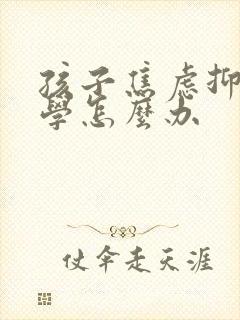 孩子焦虑抑
學怎麼办
仗伞走天涯